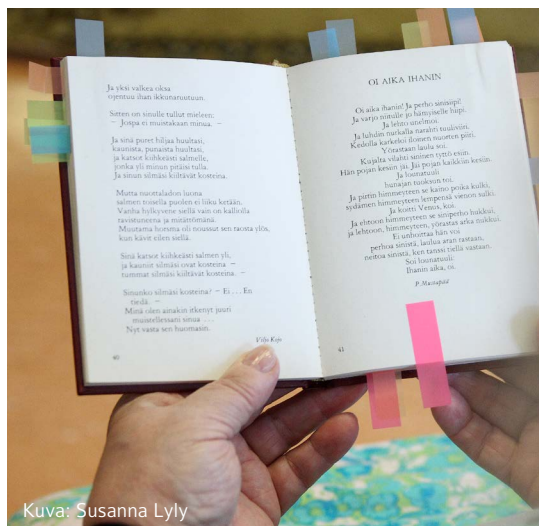 Ja yksi valkea oksa
ojentuu ihan ikkunaruutuun.
Sitten on sinulle tullut mieleen:
— Jospa ei muistakaan minua. —
Ja sinä puret hiljaa huultasi,
kaunista, punaista huultasi,
ja katsot kiihkeästi salmelle,
jonka yli minun pitäisi tulla.
Ja sinun silmäsi kiiltävät kosteina.
Mutta nuottaladon luona
salmen toisella puolen ei liiku ketään.
Vanha hylkyvene siellä vain on kalliolla
ravistuneena ja mitättömänä.
Muutama horsma oli noussut sen raosta ylös,
kun kävit eilen siellä.
Sinä katsot kiihkeästi salmen yli,
ja kauniit silmäsi ovat kosteina —
tummat silmäsi kiiltävät kosteina. —
Sinunko silmäsi kosteina? — Ei . . . En
tiedä. —
Minä olen ainakin itkenyt juuri
muistellessani sinua . . . .
Nyt vasta sen huomasin.
Viljo Kojo
40
OI AIKA IHANIN
Oi aika ihanin! Ja perho sinisiipi!
Ja varjo niitulle jo hämyiselle hiipi.
Ja lehto unelmoi.
Ja luhdin nurkalla narahti tuuliviiri.
Kedolla karkeloi iloinen nuorten piiri.
Yörastaan laulu soi.
Kujalta vilahti sininen tyttö esiin.
Hän pojan kesiin jäi. Jäi pojan kaikkiin kesiin.
Ja lounatuuli
hunajan tuoksun toi.
Ja pirtin himmeyteen se kaino poika kulki,
sydämen himmeyteen lempensä vienon sulki.
Ja koitti Venus, koi.
Ja ehtoon himmeyteen se siniperho hukkui,
ja lehtoon, himmeyteen, yörastas arka nukkui.
Ei unhoittaa hän voi
perhoa sinistä, laulua aran rastaan,
neitoa sinistä, ken tanssi tiellä vastaan.
Soi lounatuuli:
Ihanin aika, oi.
P. Mustapää
41
Kuva: Susanna Lyly